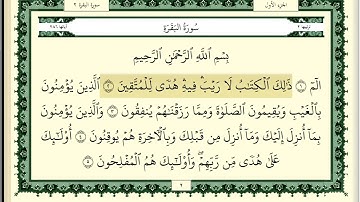 سورة البقرة ٢
الجزء الأول
سُورَةُ البَقَرَةِ
بِسْمِ اللَّهِ الرَّحْمَٰنِ الرَّحِيمِ
الٓمٓ ١ ذَٰلِكَ الْكِتَابُ لَا رَيْبَ ۛ فِيهِ ۛ هُدًى لِّلْمُتَّقِينَ ٢ الَّذِينَ يُؤْمِنُونَ
بِالْغَيْبِ وَيُقِيمُونَ الصَّلَوٰةَ وَمِمَّا رَزَقْنَٰهُمْ يُنفِقُونَ ٣ وَالَّذِينَ يُؤْمِنُونَ
بِمَا أُنزِلَ إِلَيْكَ وَمَا أُنزِلَ مِن قَبْلِكَ وَبِالْآخِرَةِ هُمْ يُوقِنُونَ ٤ أُولَٰئِكَ
عَلَىٰ هُدًى مِّن رَّبِّهِمْ ۖ وَأُولَٰئِكَ هُمُ الْمُفْلِحُونَ ٥
٢